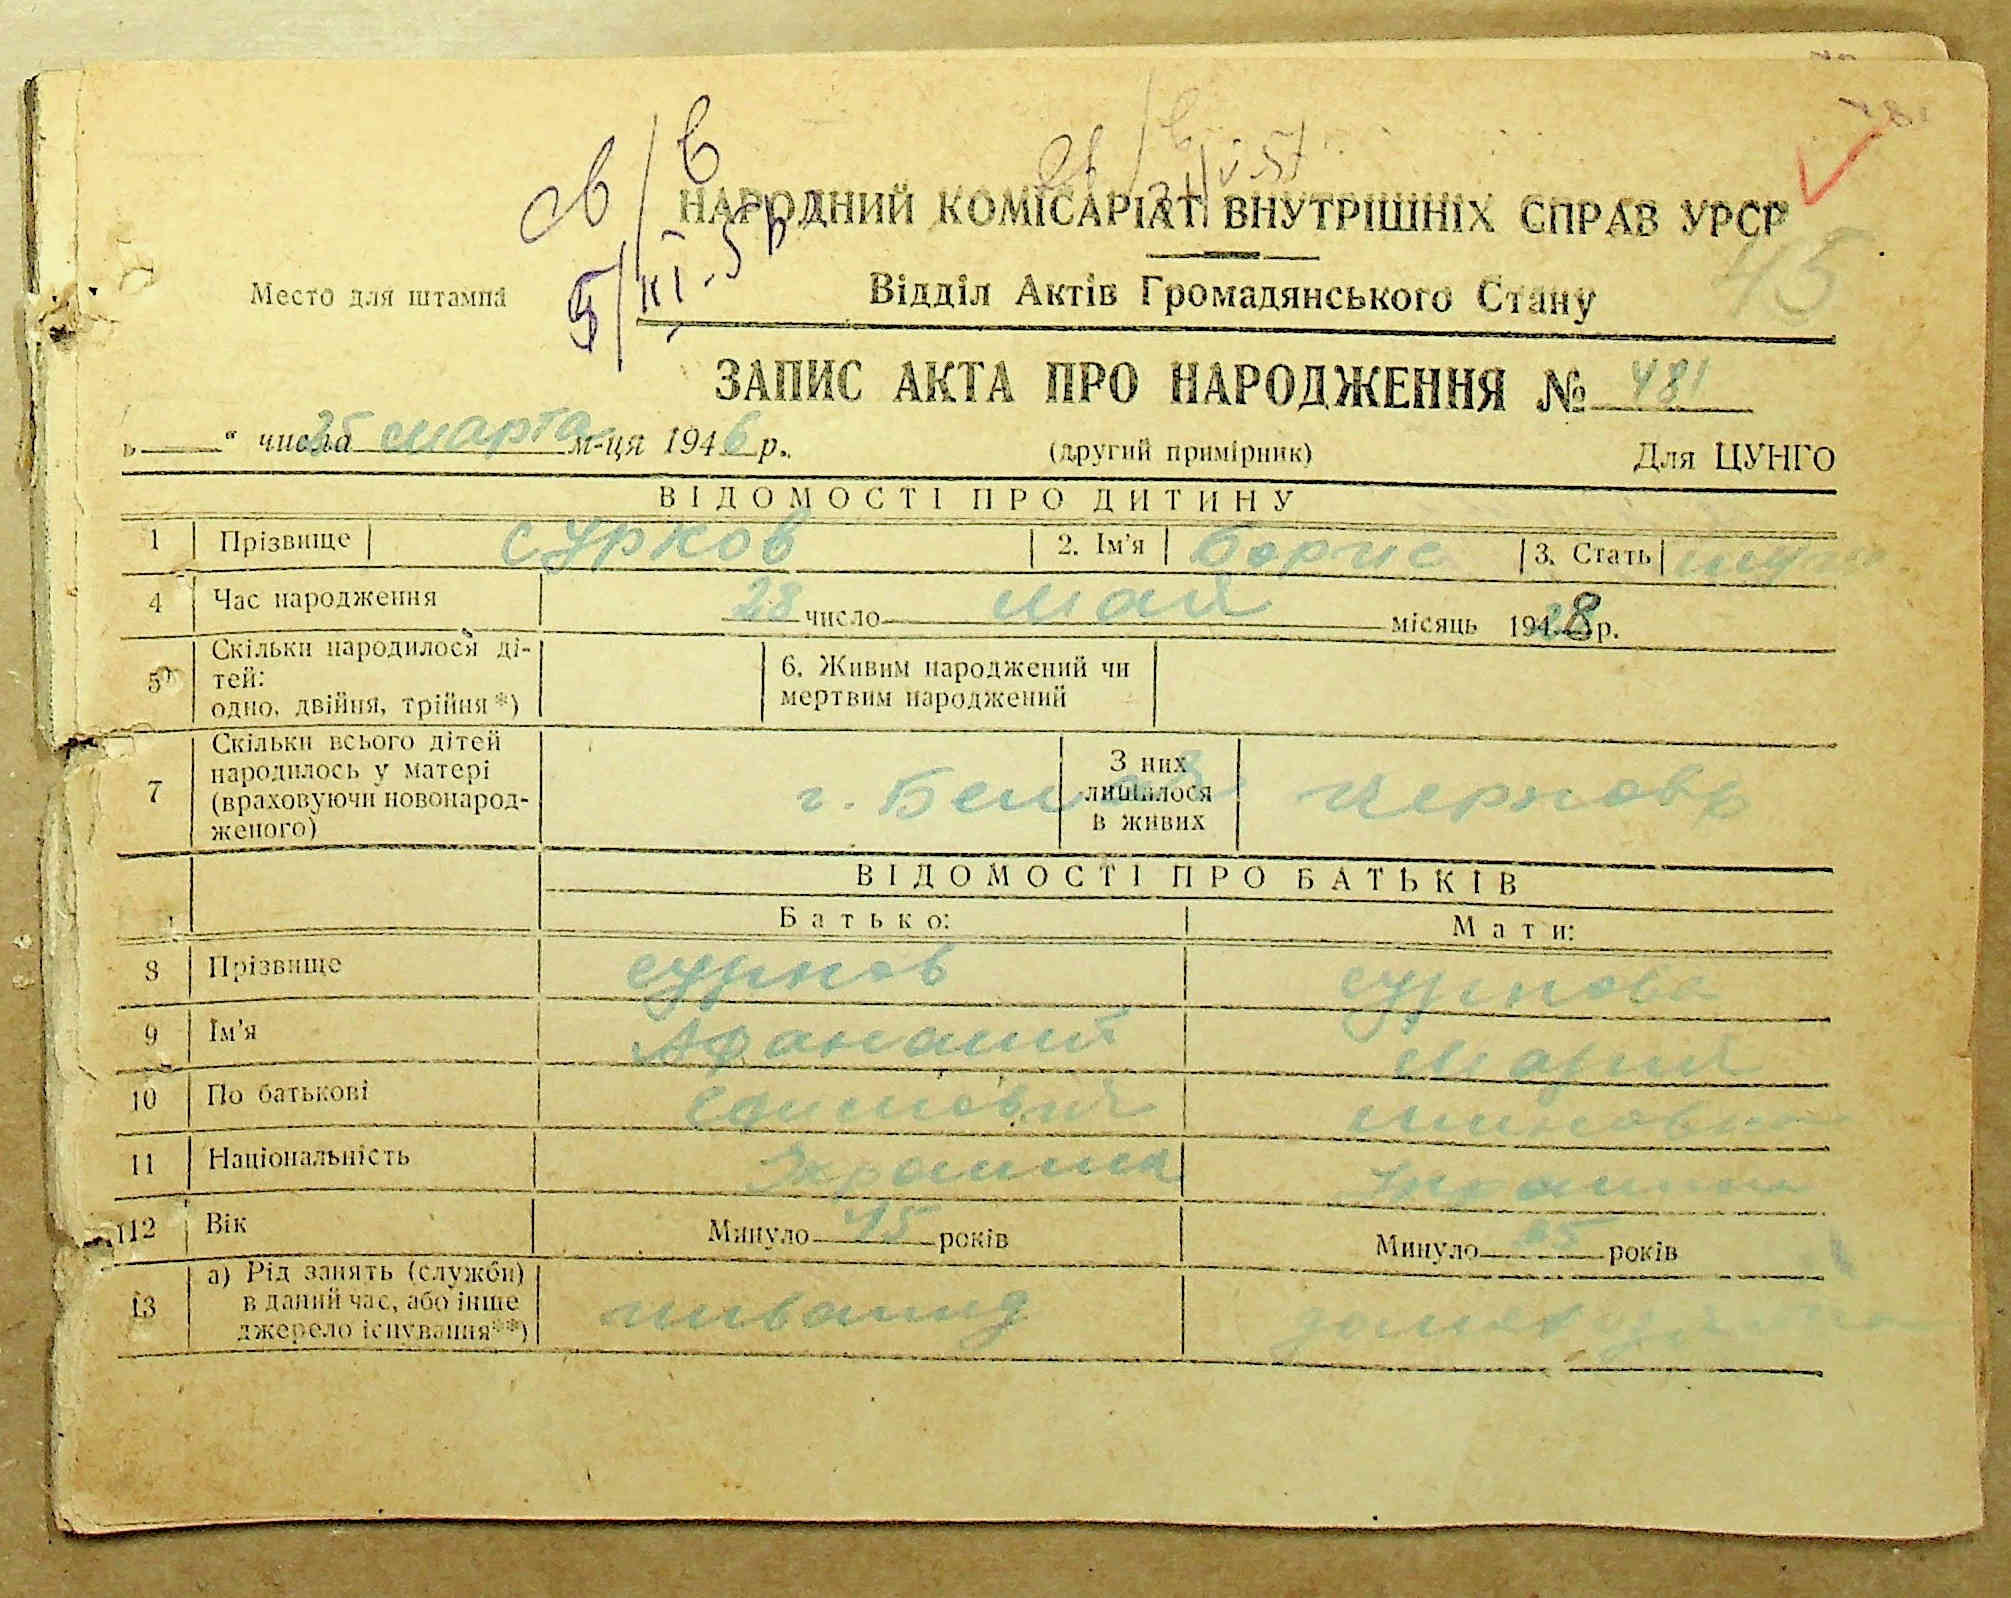 св/в
5/XI-5
НАРОДНИЙ КОМІСАРІАТ ВНУТРІШНІХ СПРАВ УРСР
45
Место для штампа
Відділ Актів Громадянського Стану
ЗАПИС АКТА ПРО НАРОДЖЕННЯ № 481
„ “ числа 25 марта м-ця 1946 р.
(другий примірник) Для ЦУНГО
ВІДОМОСТІ ПРО ДИТИНУ
1 Прізвище Сурков 2. Ім'я Борис 3. Стать муж
4 Час народження 28 число май місяць 1928 р.
5 Скільки народилося ді-
тей:
одно, двійня, трійня*)
6. Живим народжений чи
мертвим народжений
7 Скільки всього дітей
народилось у матері
(враховуючи новонарод-
женого)
З них
лишилося
в живих
г.
ВІДОМОСТІ ПРО БАТЬКІВ
Батько: Мати:
8 Прізвище Сурков Суркова
9 Ім'я Афанасий Мария
10 По батькові Миновна
11 Національність
12 Вік Минуло 45 років Минуло 45 років
13 а) Рід занять (служби)
в даний час, або інше
джерело існування**)
инвалид домохозяйка